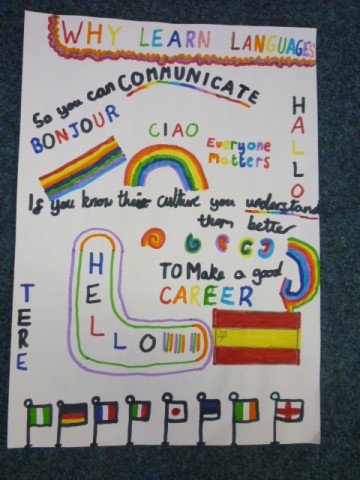 WHY LEARN LANGUAGES
So you can COMMUNICATE
BONJOUR
CIAO
Everyone
Matters
HALLO
If you know their culture you understand
them better
TO Make a good
CAREER
HELLO
TERE